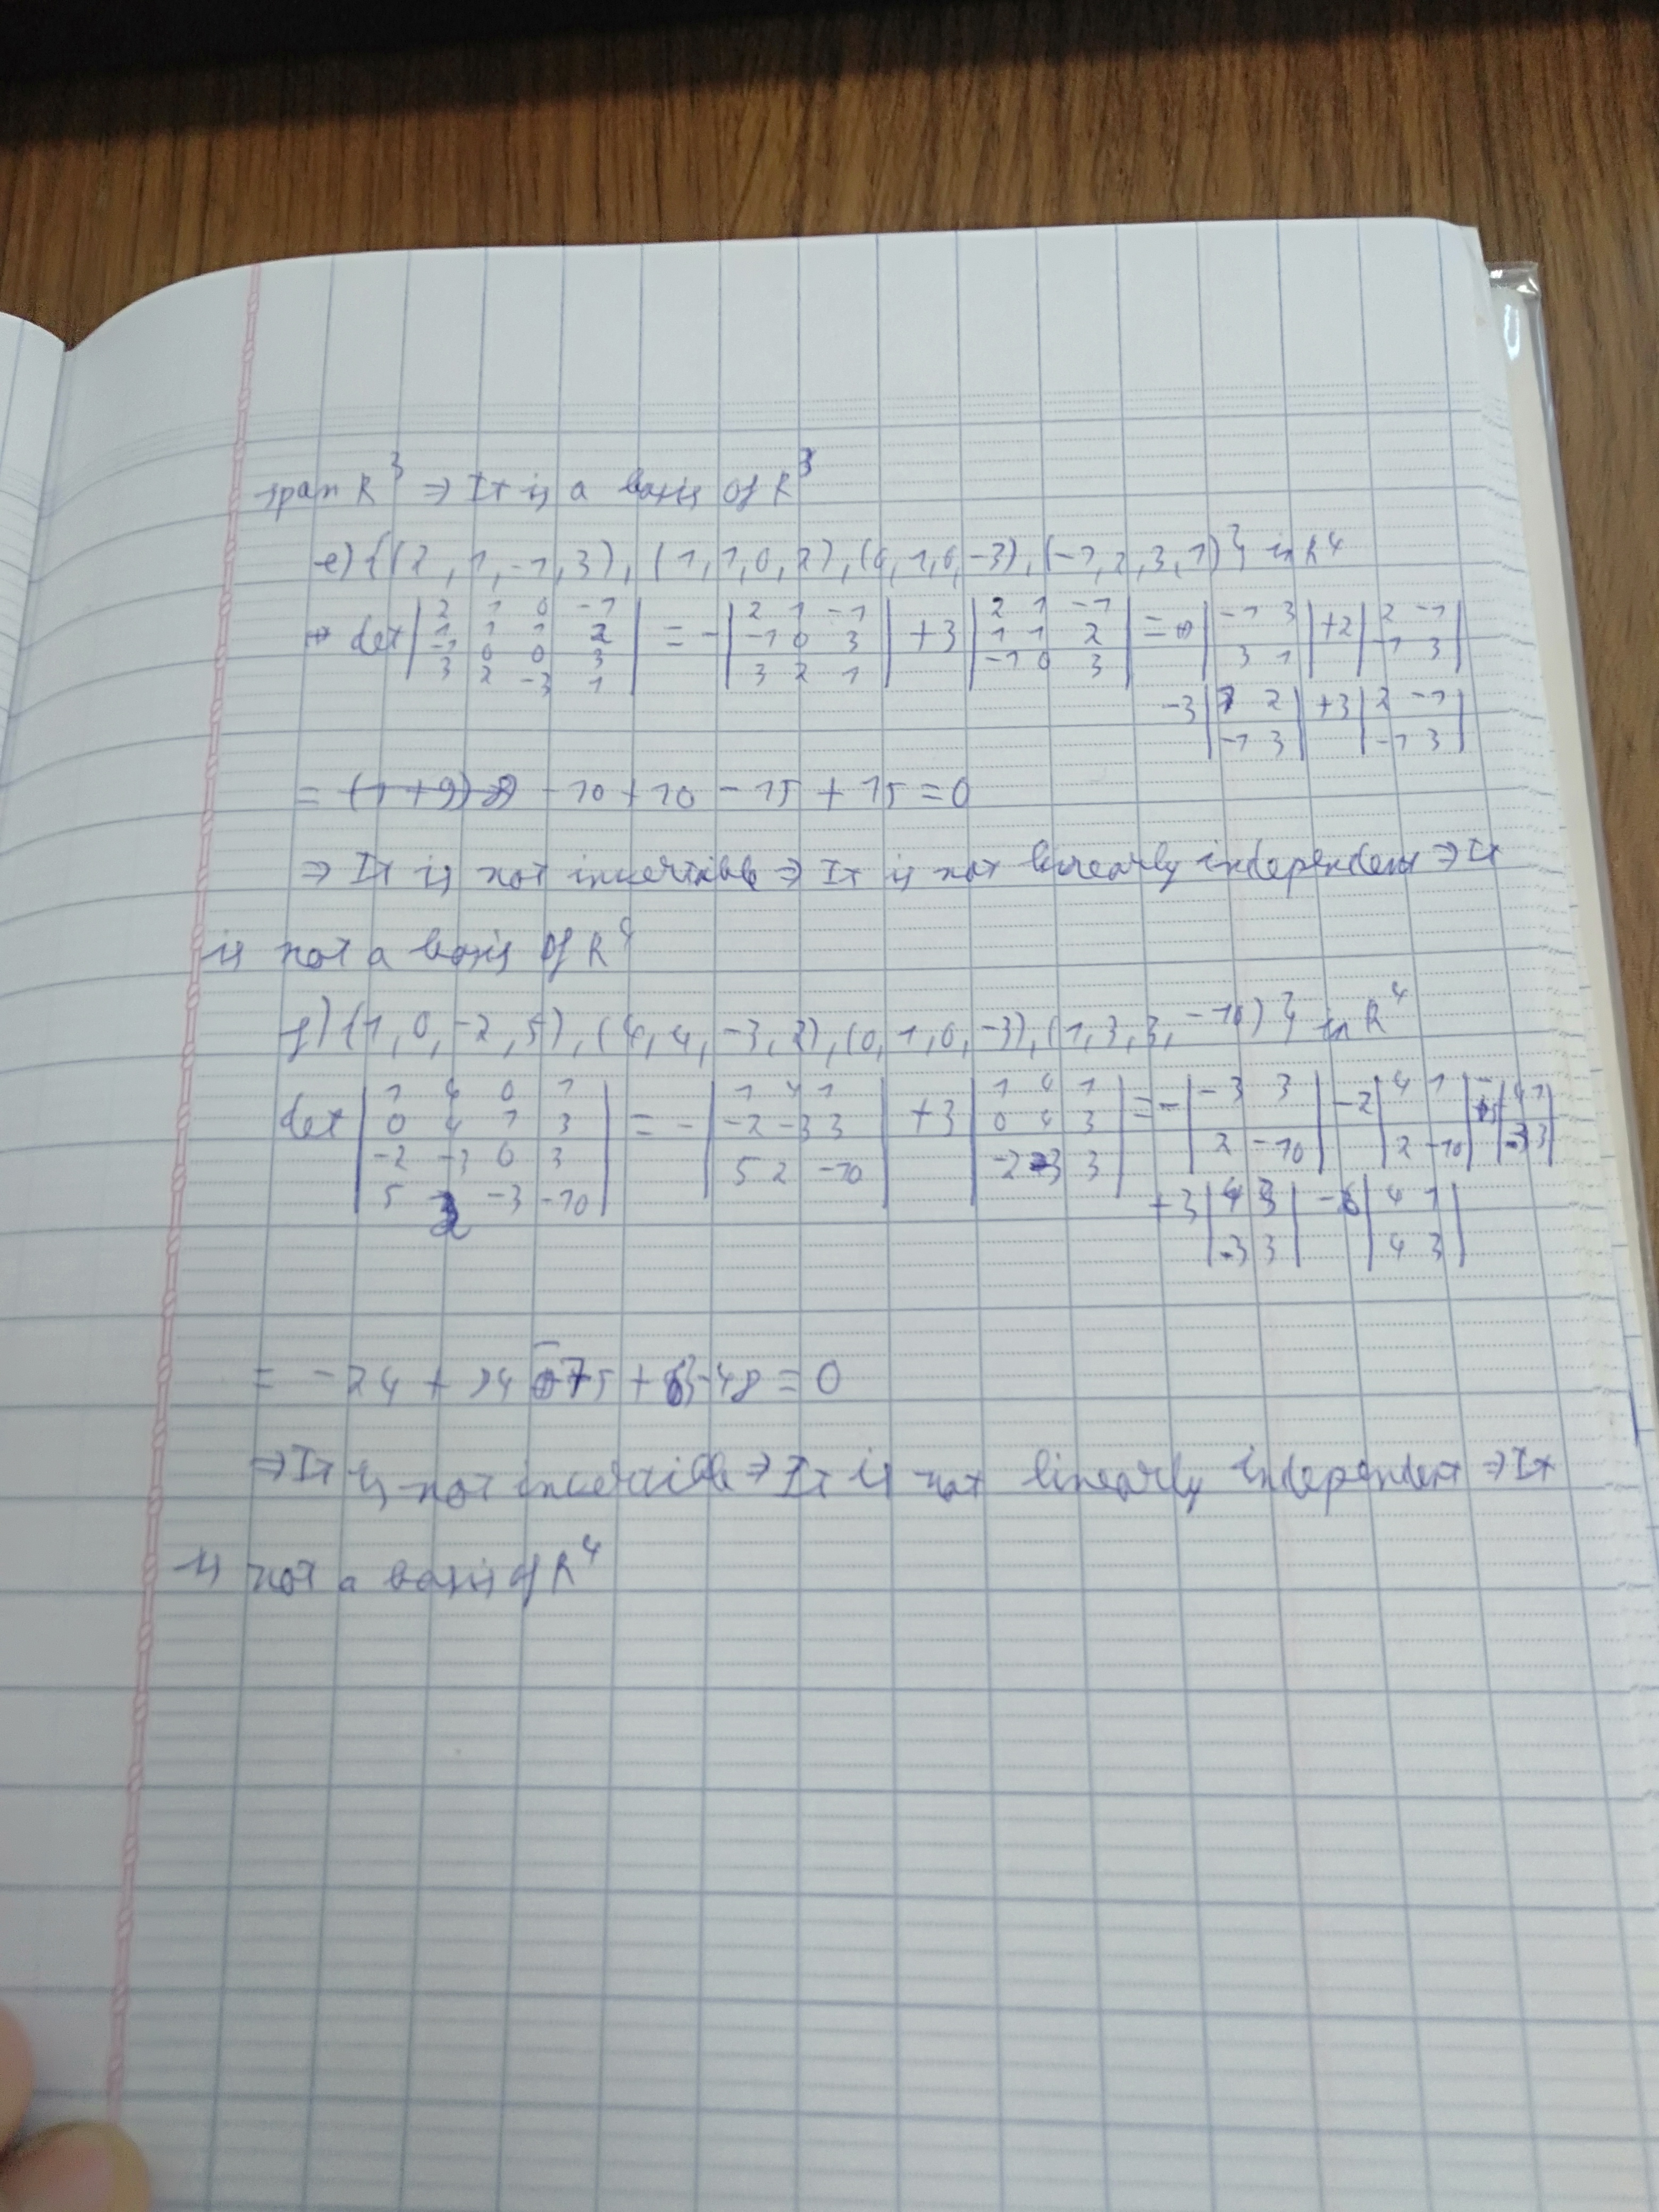 span R³ ⇒ It is a basis of R³
e) {(2, 1, -1, 3), (1, 1, 0, 2), (0, 1, 0, -3), (-1, 2, 3, 1)} in R⁴
⇒ det |2 1 0 -1; 1 1 1 2; -1 0 0 3; 3 2 -3 1| = - |2 1 -1; -1 0 3; 3 2 1| + 3 |2 1 -1; 1 1 2; -1 0 3| = |-1 3; 3 1| + 2 |2 -1; -1 3|
-3 |1 2; -1 3| + 3 |2 -1; -1 3|
= -10 + 10 - 15 + 15 = 0
⇒ It is not invertible ⇒ It is not linearly independent ⇒ It
is not a basis of R⁴
f) {1, 0, -2, 5), (4, 4, -3, 2), (0, 1, 0, -3), (1, 3, 3, -10)} in R⁴
det |1 4 0 1; 0 4 1 3; -2 -3 0 3; 5 2 -3 -10| = - |1 4 1; -2 -3 3; 5 2 -10| + 3 |1 4 1; 0 4 3; -2 -3 3| = - |-3 3; 2 -10| - 2 |4 1; 2 -10| - 5 |4 1; -3 3|
+ 3 |4 3; -3 3| - 6 |4 1; 4 3|
= -24 + 84 - 75 + 63 - 48 = 0
⇒ It is not invertible ⇒ It is not linearly independent ⇒ It
is not a basis of R⁴